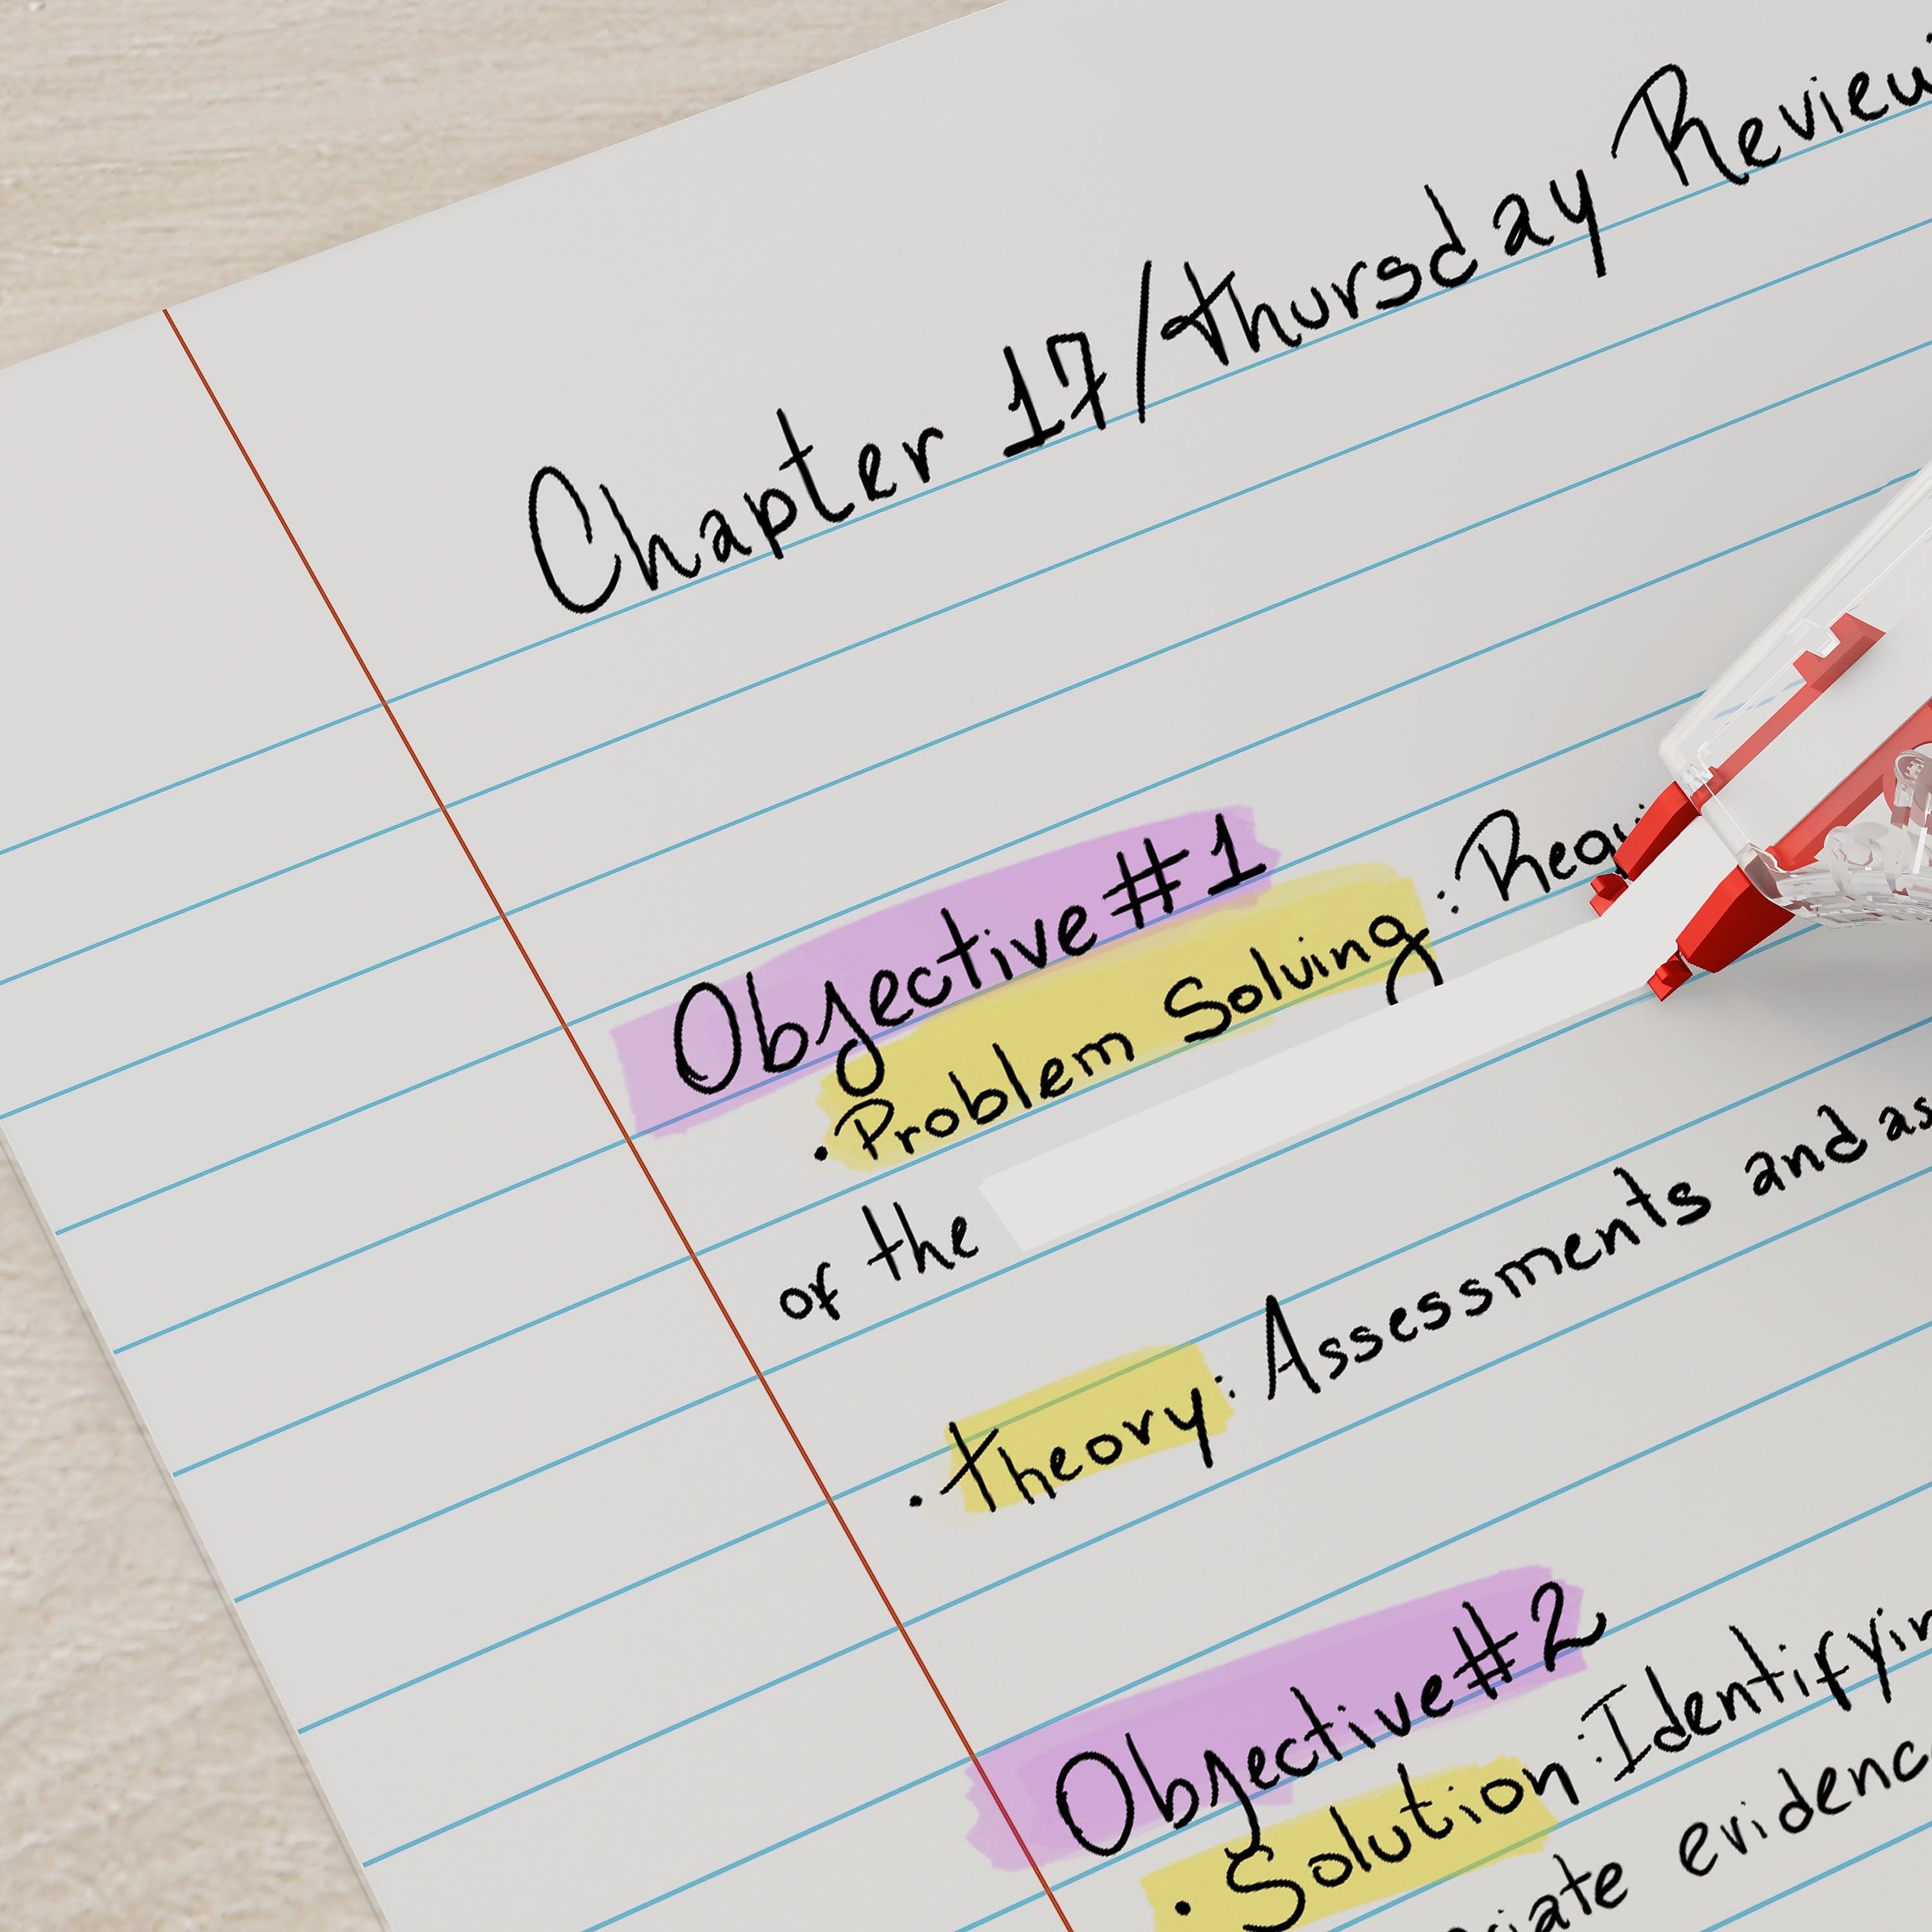 Chapter 17/Thursday Review
Objective #1
• Problem Solving : Requi
of the
• Theory: Assessments and as
Objective #2
• Solution : Identifyin
ciate evidenc